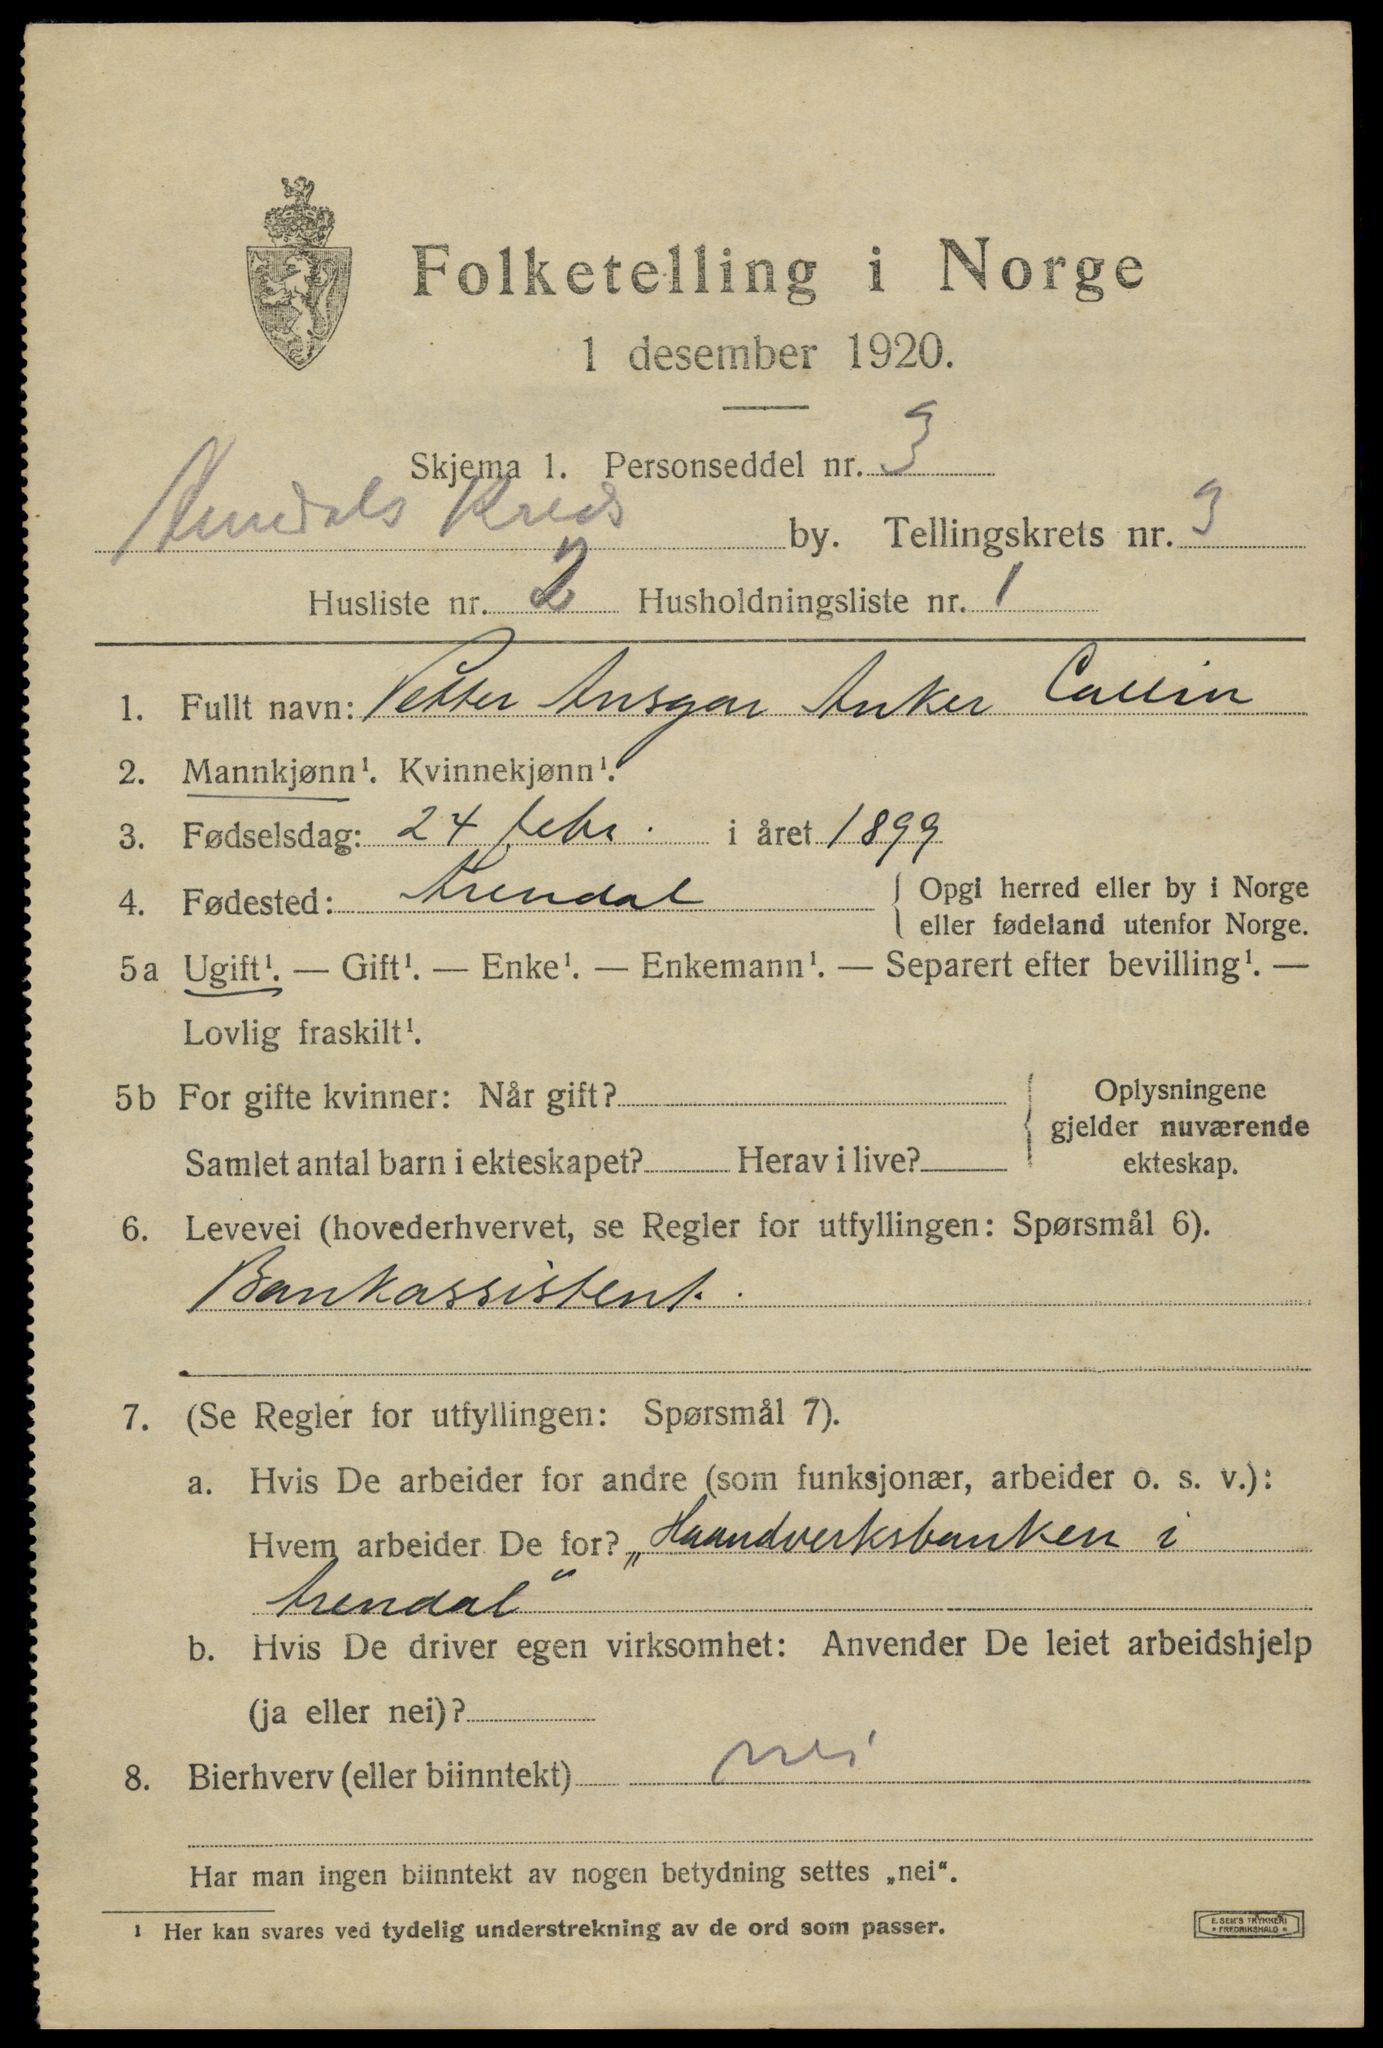 Folketelling i Norge
1 desember 1920.
Skjema 1. Personseddel nr. 3
Arendals Kreds by. Tellingskrets nr. 3
Husliste nr. 2 Husholdningsliste nr. 1
1. Fullt navn: Petter Ansgar Anker Callin
2. Mannkjønn¹. Kvinnekjønn¹.
3. Fødselsdag: 24 febr. i året 1899
4. Fødested: Arendal { Opgi herred eller by i Norge
eller fødeland utenfor Norge.
5a Ugift¹. — Gift¹. — Enke¹. — Enkemann¹. — Separert efter bevilling¹. —
Lovlig fraskilt¹.
5b For gifte kvinner: Når gift?
Samlet antal barn i ekteskapet? Herav i live?
Oplysningene
gjelder nuværende
ekteskap.
6. Levevei (hovederhvervet, se Regler for utfyllingen: Spørsmål 6).
Bankassistent.
7. (Se Regler for utfyllingen: Spørsmål 7).
a. Hvis De arbeider for andre (som funksjonær, arbeider o. s. v.):
Hvem arbeider De for? „Haandverksbanken i
Arendal“
b. Hvis De driver egen virksomhet: Anvender De leiet arbeidshjelp
(ja eller nei)?
8. Bierhverv (eller biinntekt) nei
Har man ingen biinntekt av nogen betydning settes „nei“.
1 Her kan svares ved tydelig understrekning av de ord som passer.
E. SEM'S TRYKKERI
* FREDRIKSHALD *